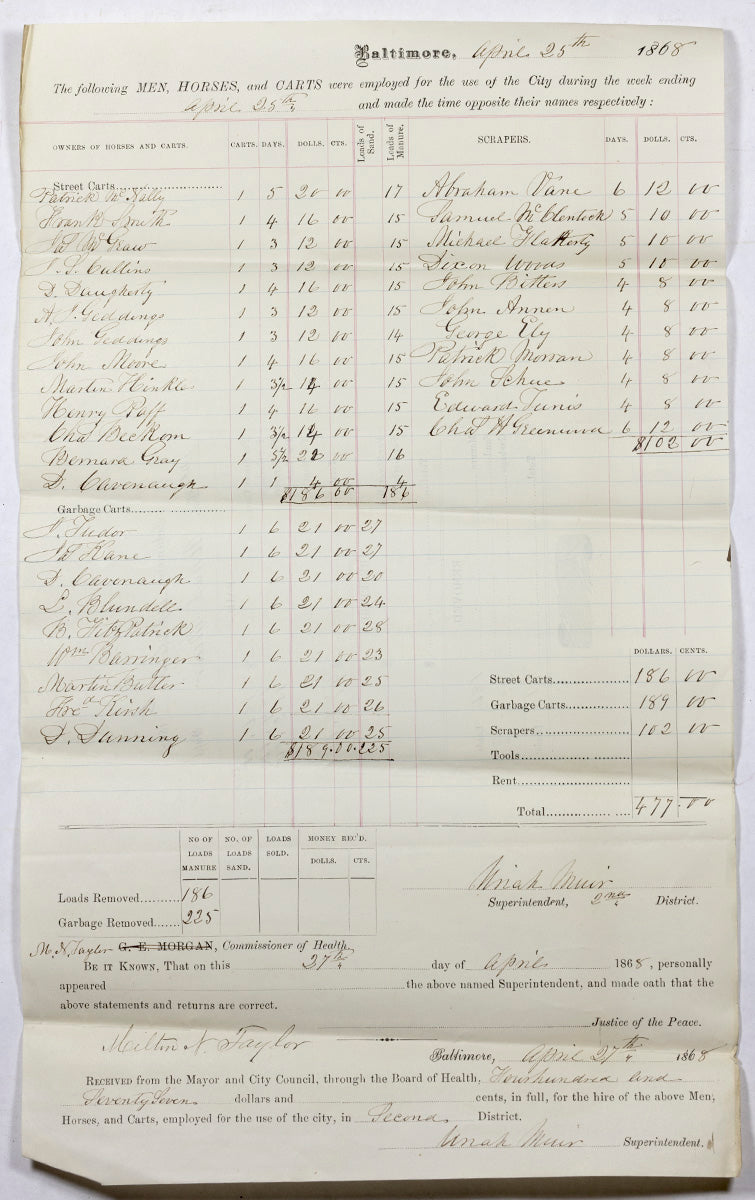 Baltimore, April 25th 1868
The following MEN, HORSES, and CARTS were employed for the use of the City during the week ending
April 25th and made the time opposite their names respectively:
OWNERS OF HORSES AND CARTS. CARTS. DAYS. DOLLS. CTS. Loads of Sand. Loads of Manure. SCRAPERS. DAYS. DOLLS. CTS.
Street Carts
Patrick McNally 1 5 20 00 17 Abraham Vane 6 12 00
Frank Smith 1 4 16 00 15 Samuel McClentock 5 10 00
Jas McGraw 1 3 12 00 15 Michael Flaherty 5 10 00
J. S. Cullins 1 3 12 00 15 Dixon Woods 5 10 00
D. Daugherty 1 4 16 00 15 John Bitters 4 8 00
A. J. Geddings 1 3 12 00 15 John Annen 4 8 00
John Geddings 1 3 12 00 14 George Ely 4 8 00
John Moore 1 4 16 00 15 Patrick Morran 4 8 00
Martin Hinkle 1 3½ 14 00 15 John Schue 4 8 00
Henry Raff 1 4 16 00 15 Edward Tunis 4 8 00
Chas Beckom 1 3½ 14 00 15 Chas H Greenwood 6 12 00
Bernard Gray 1 5½ 22 00 16 $102 00
D. Cavenaugh 1 1 4 00 4
$186 00 186
Garbage Carts
J. Tudor 1 6 21 00 27
Jas Kane 1 6 21 00 27
D. Cavenaugh 1 6 21 00 20
L. Blundell 1 6 21 00 24
B. Fitzpatrick 1 6 21 00 28
Wm Barringer 1 6 21 00 23
Martin Butler 1 6 21 00 25
Fred Kirsh 1 6 21 00 26
D. Dunning 1 6 21 00 25
$189.00 225
DOLLARS. CENTS.
Street Carts 186 00
Garbage Carts 189 00
Scrapers 102 00
Tools
Rent
Total 477 00
NO OF LOADS MANURE NO. OF LOADS SAND. LOADS SOLD. MONEY REC'D. DOLLS. CTS.
Loads Removed 186
Garbage Removed 225
Uriah Muir
Superintendent, 2nd District.
M. N. Taylor G. E. MORGAN, Commissioner of Health
BE IT KNOWN, That on this 27th day of April 1868, personally
appeared the above named Superintendent, and made oath that the
above statements and returns are correct.
Justice of the Peace.
Milton N. Taylor
Baltimore, April 27th 1868
RECEIVED from the Mayor and City Council, through the Board of Health, Four hundred and
Seventy Seven dollars and cents, in full, for the hire of the above Men,
Horses, and Carts, employed for the use of the city, in Second District.
Uriah Muir Superintendent.